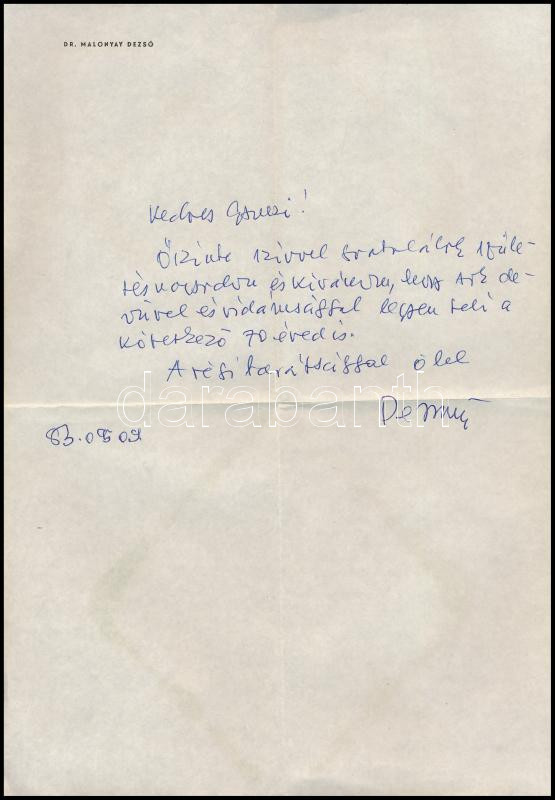 DR. MALONYAY DEZSŐ
Kedves !
Őszinte szívvel gratulálok szüle-
tésnapodon és kívánom, hogy sok de-
rűvel és vidámsággal legyen teli a
következő 70 éved is.
A régi barátsággal ölel
Dezső
83.05.09
darabanth